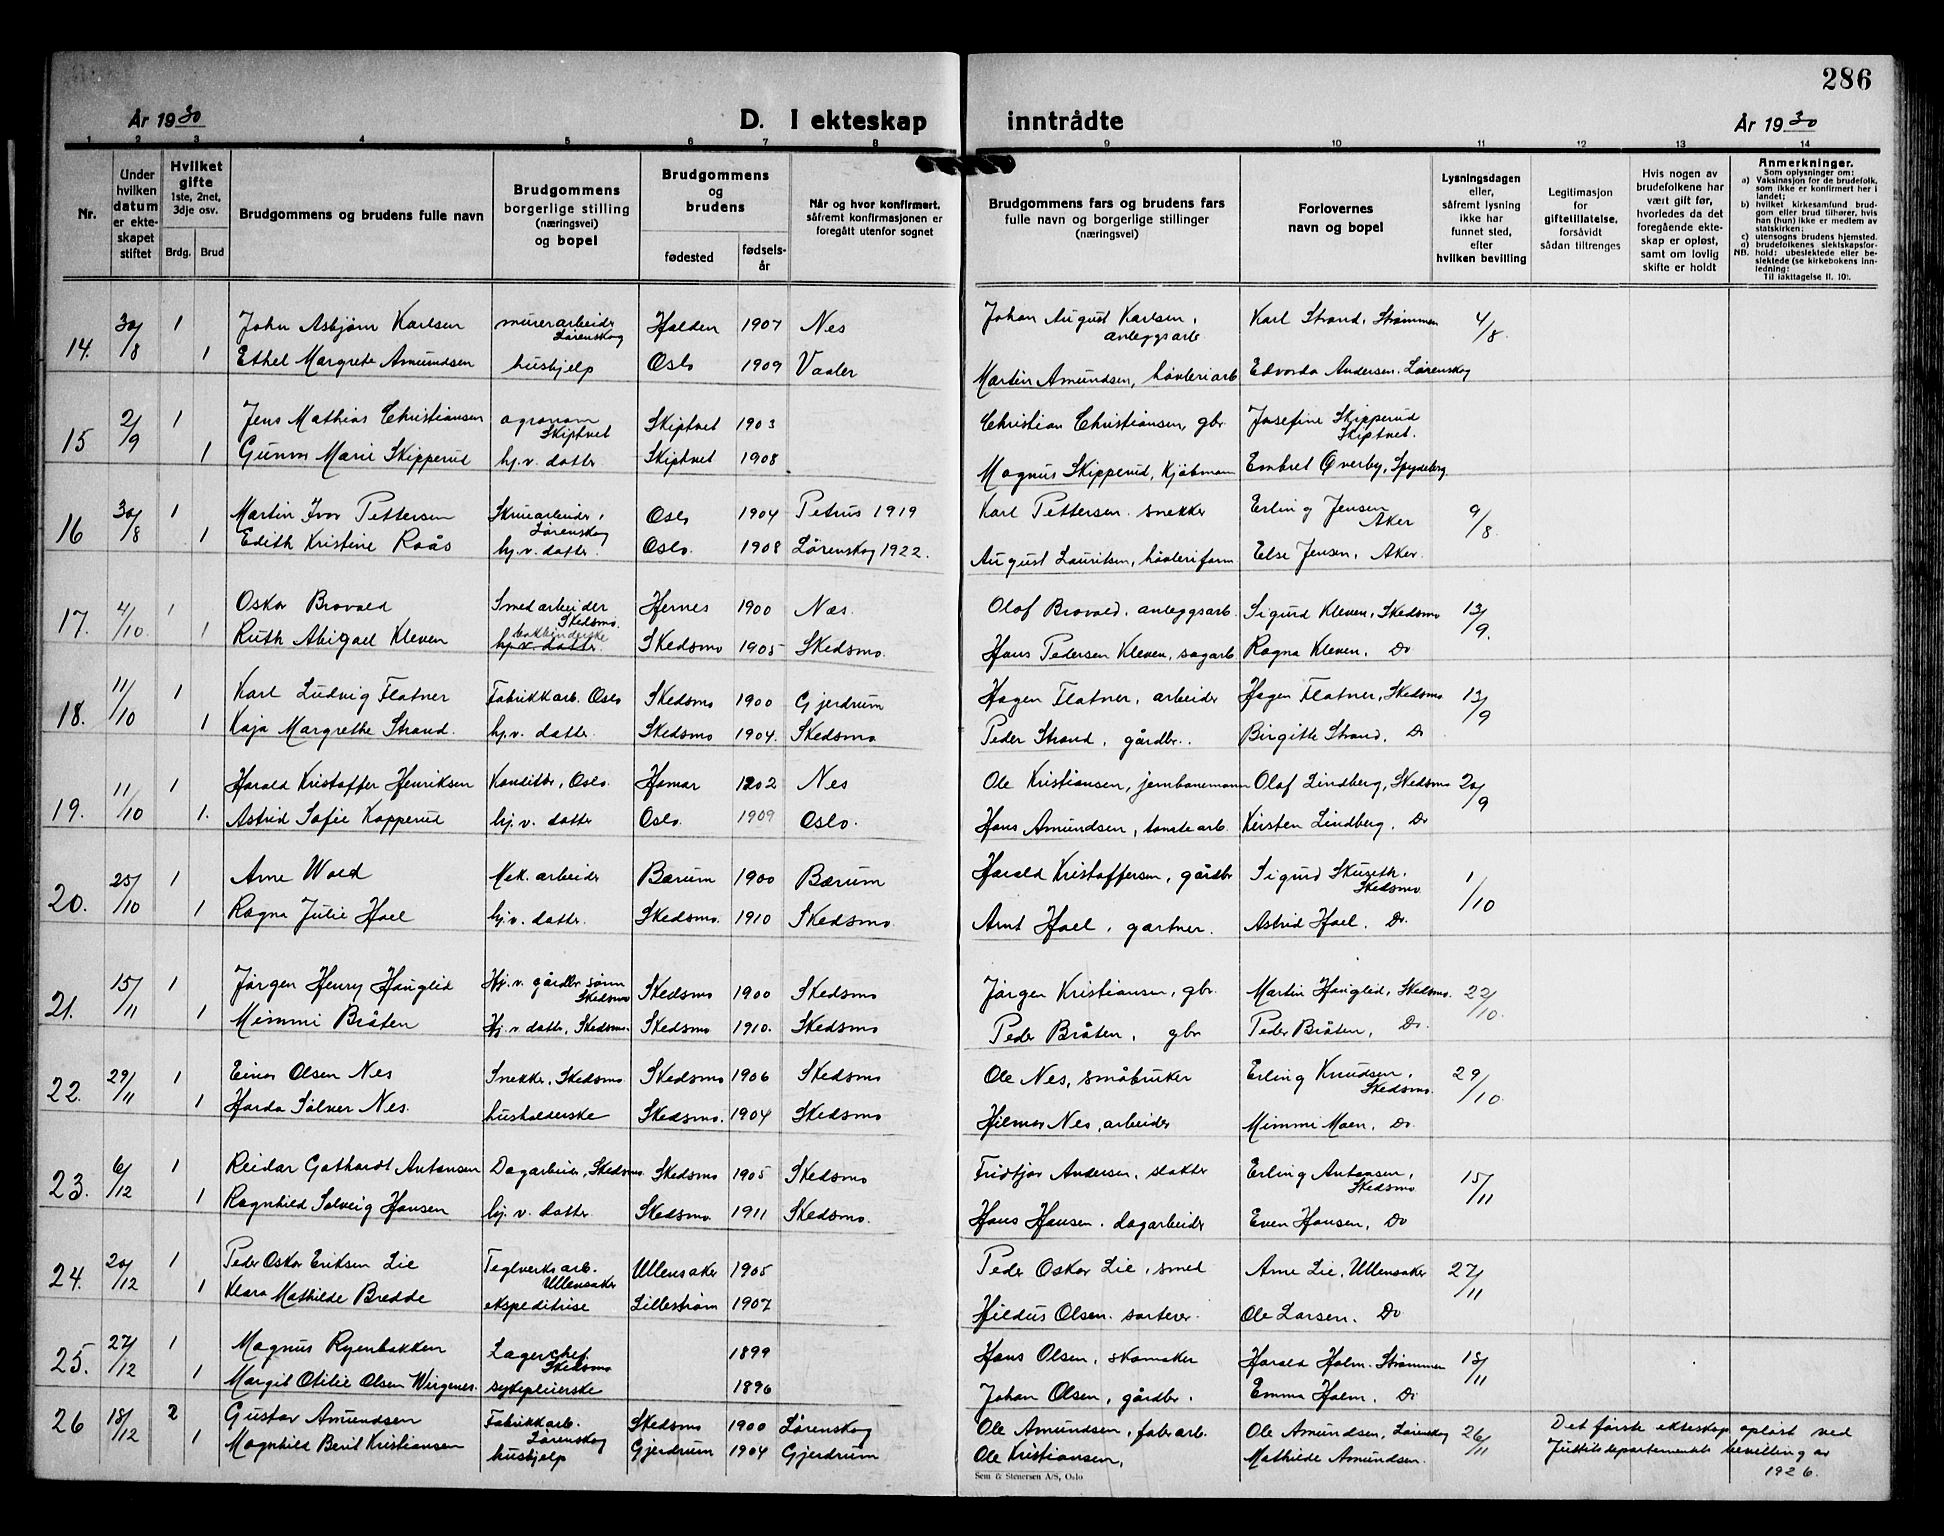 286
År 1930
D. I ekteskap inntrådte
År 1930
1 2 3 4 5 6 7 8 9 10 11 12 13 14
Nr.
Under hvilken datum er ekte-skapet stiftet
Hvilket gifte 1ste, 2net, 3dje osv.
Brdg. Brud
Brudgommens og brudens fulle navn
Brudgommens borgerlige stilling (næringsvei) og bopel
Brudgommens og brudens
fødested
fødsels-år
Når og hvor konfirmert, såfremt konfirmasjonen er foregått utenfor sognet
Brudgommens fars og brudens fars fulle navn og borgerlige stillinger (næringsvei)
Forlovernes navn og bopel
Lysningsdagen eller, såfremt lysning ikke har funnet sted, efter hvilken bevilling
Legitimasjon for giftetillatelse, forsåvidt sådan tiltrenges
Hvis nogen av brudefolkene har vært gift før, hvorledes da det foregående ekte-skap er opløst, samt om lovlig skifte er holdt
Anmerkninger.
Som oplysninger om:
a) Vaksinasjon for de brudefolk, som ikke er konfirmert her i landet;
b) hvilket kirkesamfund brud-gom eller brud tilhører, hvis han (hun) ikke er medlem av statskirken;
c) utensogns brudens hjemsted.
d) brudefolkenes slektskapsfor-hold: ubeslektede eller be-slektede (se kirkebokens inn-ledning:
NB. Til iakttagelse II. 10).
14. 30/8 1 John Asbjørn Karlsen murerarbeider Lørenskog Halden 1907 Nes Johan August Karlsen, anleggsarb. Karl Strand, Strømmen 4/8.
1 Ethel Margrete Amundsen hushjelp Oslo 1909 Vaaler Martin Amundsen, høvleriarb Edvarda Andersen. Lørenskog
15 2/9 1 Jens Mathias Christiansen agronom Skiptvet Skiptvet 1903 Christian Christiansen, gbr. Josefine Skipperud Skiptvet.
1 Gunvor Marie Skipperud hj.v. datter Skiptvet 1908 Magnus Skipperud, Kjøbmann Embret Overby, Spydeberg
16 30/8 1 Martin Ivar Pettersen Skruearbeider, Lørenskog Oslo 1904 Petrus 1919 Karl Pettersen. snekker Erling Jensen Aker 9/8.
1 Edith Kristine Roås hj.v. datter. Oslo. 1908 Lørenskog 1922. August Lauritsen, høvleriform Else Jensen, Aker.
17. 4/10. 1 Oskar Brovold Smedarbeider Skedsmo. Hernes 1900 Nes. Olaf Brovold. anleggsarb. Sigurd Kleven, Skedsmo 13/9.
1 Ruth Abigael Kleven bokbinderske hj.v. datter. Skedsmo 1905 Skedsmo. Hans Pedersen Kleven, sagarb Ragna Kleven. Do
18. 11/10 1 Karl Ludvig Flatner Fabrikkarb. Oslo Skedsmo 1900 Gjerdrum Hagen Flatner, arbeider Hagen Flatner, Skedsmo 13/9
1 Kaja Margrethe Strand. hj.v. datter. Skedsmo 1904. Skedsmo Peder Strand, gårdbr. Birgitte Strand, Do
19. 11/10 1 Harald Kristoffer Henriksen Konditor, Oslo. Hamar 1902 Nes Ole Kristiansen, jernbanemann Olaf Lindberg, Skedsmo 20/9
1. Astrid Sofie Kopperud hj.v. datter Oslo. 1909 Oslo. Hans Amundsen, tomtearb. Kirsten Lindberg. Do
20. 25/10 1 Arne Wold Mek. arbeider Bærum 1900 Bærum Harald Kristoffersen, gårdbr Sigurd Skuseth, Skedsmo 1/10
1 Ragna Julie Hoel hj.v. datter. Skedsmo. 1910 Skedsmo. Arnt Hoel, gartner. Astrid Hoel. Do.
21. 15/11 1 Jørgen Henry Hauglid Hj.v. gårdbr. sønn Skedsmo Skedsmo 1900 Skedsmo Jørgen Kristiansen, gbr. Martin Hauglid, Skedsmo. 22/10.
1 Mimmi Bråten Hj.v. datter, Skedsmo. Skedsmo 1910. Skedsmo Peder Bråten, gbr Peder Bråten, Do.
22. 29/11 1 Einar Olsen Nes Snekker, Skedsmo. Skedsmo 1906 Skedsmo Ole Nes, småbruker Erling Knudsen, Skedsmo. 29/10.
1 Harda Sølver Nes. husholderske Skedsmo. 1904 Skedsmo Hilmar Nes, arbeider Mimmi Moen, Do.
23. 6/12 1 Reidar Gothardt Antonsen Dagarbeider, Skedsmo Skedsmo 1905 Skedsmo Fridtjov Andersen, slakter Erling Antonsen, Skedsmo 15/11
1 Ragnhild Solveig Hansen hj.v. datter Skedsmo. 1911 Skedsmo. Hans Hansen. dagarbeider Even Hansen, Do
24. 20/12 1 Peder Oskar Eriksen Lie Teglverksarb. Ullensaker Ullensaker 1905 Peder Oskar Lie, smed Arne Lie, Ullensaker 27/11
1 Klara Mathilde Bredde ekspeditrise Lillestrøm 1907 Hildus Olsen. sorterer. Ole Larsen. Do
25. 27/12 1 Magnus Ryenbakken Lagerchef Skedsmo 1899 Hans Olsen, skomaker Harald Holm. Strømmen 18/11
1 Margit Otilie Olsen Wirgenes. sykepleierske 1896 Johan Olsen, gårdbr. Emma Holm. Do
26 18/12 2 Gustav Amundsen Fabrikkarb. Lørenskog Skedsmo 1900 Lørenskog Ole Amundsen, fabr.arb. Ole Amundsen, Lørenskog 26/11 Det første ekteskap opløst ved
1 Magnhild Berit Kristiansen hushjelp Gjerdrum 1904 Gjerdrum Ole Kristiansen, Mathilde Amundsen. Justisdepartementets bevilling av 1926.
Sem & Stenersen A/S, Oslo